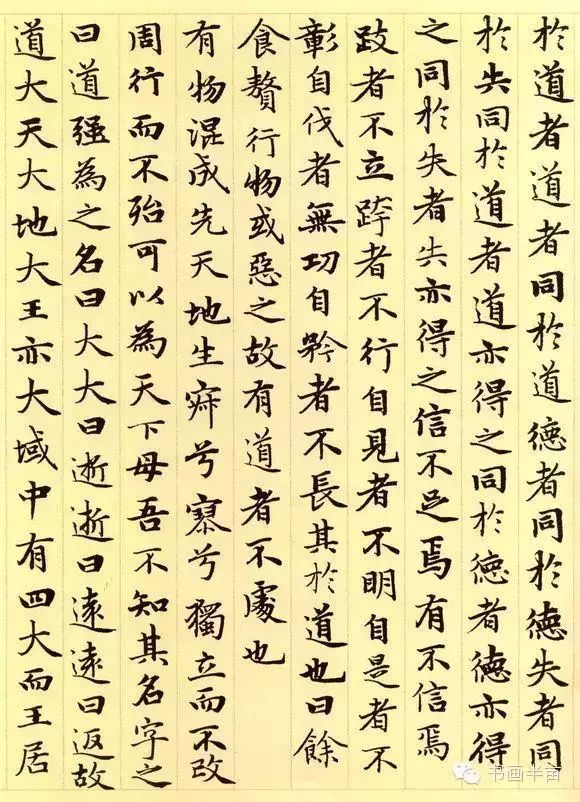 於道者道者同於道德者同於德失者同
於失同於道者道亦得之同於德者德亦得
之同於失者失亦得之信不足焉有不信焉
跂者不立跨者不行自見者不明自是者不
彰自伐者無功自矜者不長其於道也曰餘
食贅行物或惡之故有道者不處也
有物混成先天地生寂兮寥兮獨立而不改
周行而不殆可以為天下母吾不知其名字之
曰道強為之名曰大大曰逝逝曰遠遠曰返故
道大天大地大王亦大域中有四大而王居
书画半亩